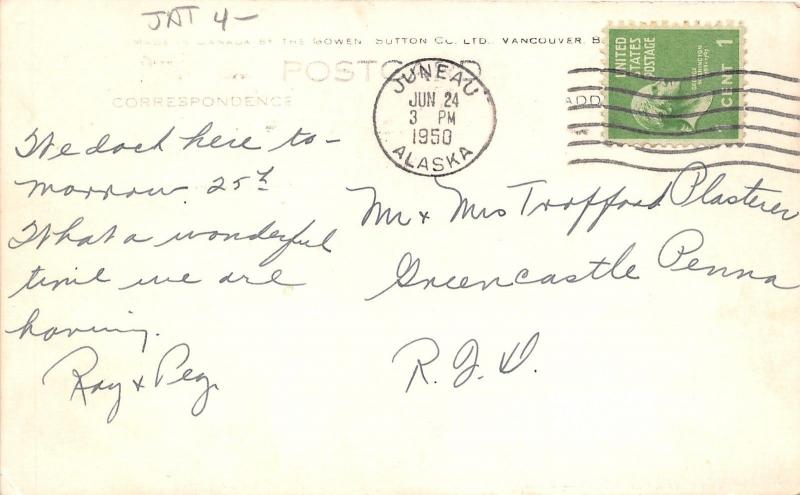 JAT 4-
MADE IN CANADA BY THE GOWEN SUTTON CO. LTD., VANCOUVER, B
POSTCARD
CORRESPONDENCE
ADD
JUNEAU
JUN 24
3 PM
1950
ALASKA
UNITED
STATES
POSTAGE
1
CENT
We dock here to-
morrow 25th
What a wonderful
time we are
having.
Ray & Peg.
Mr & Mrs Trafford Plasterer
Greencastle Penna
R. F. D.